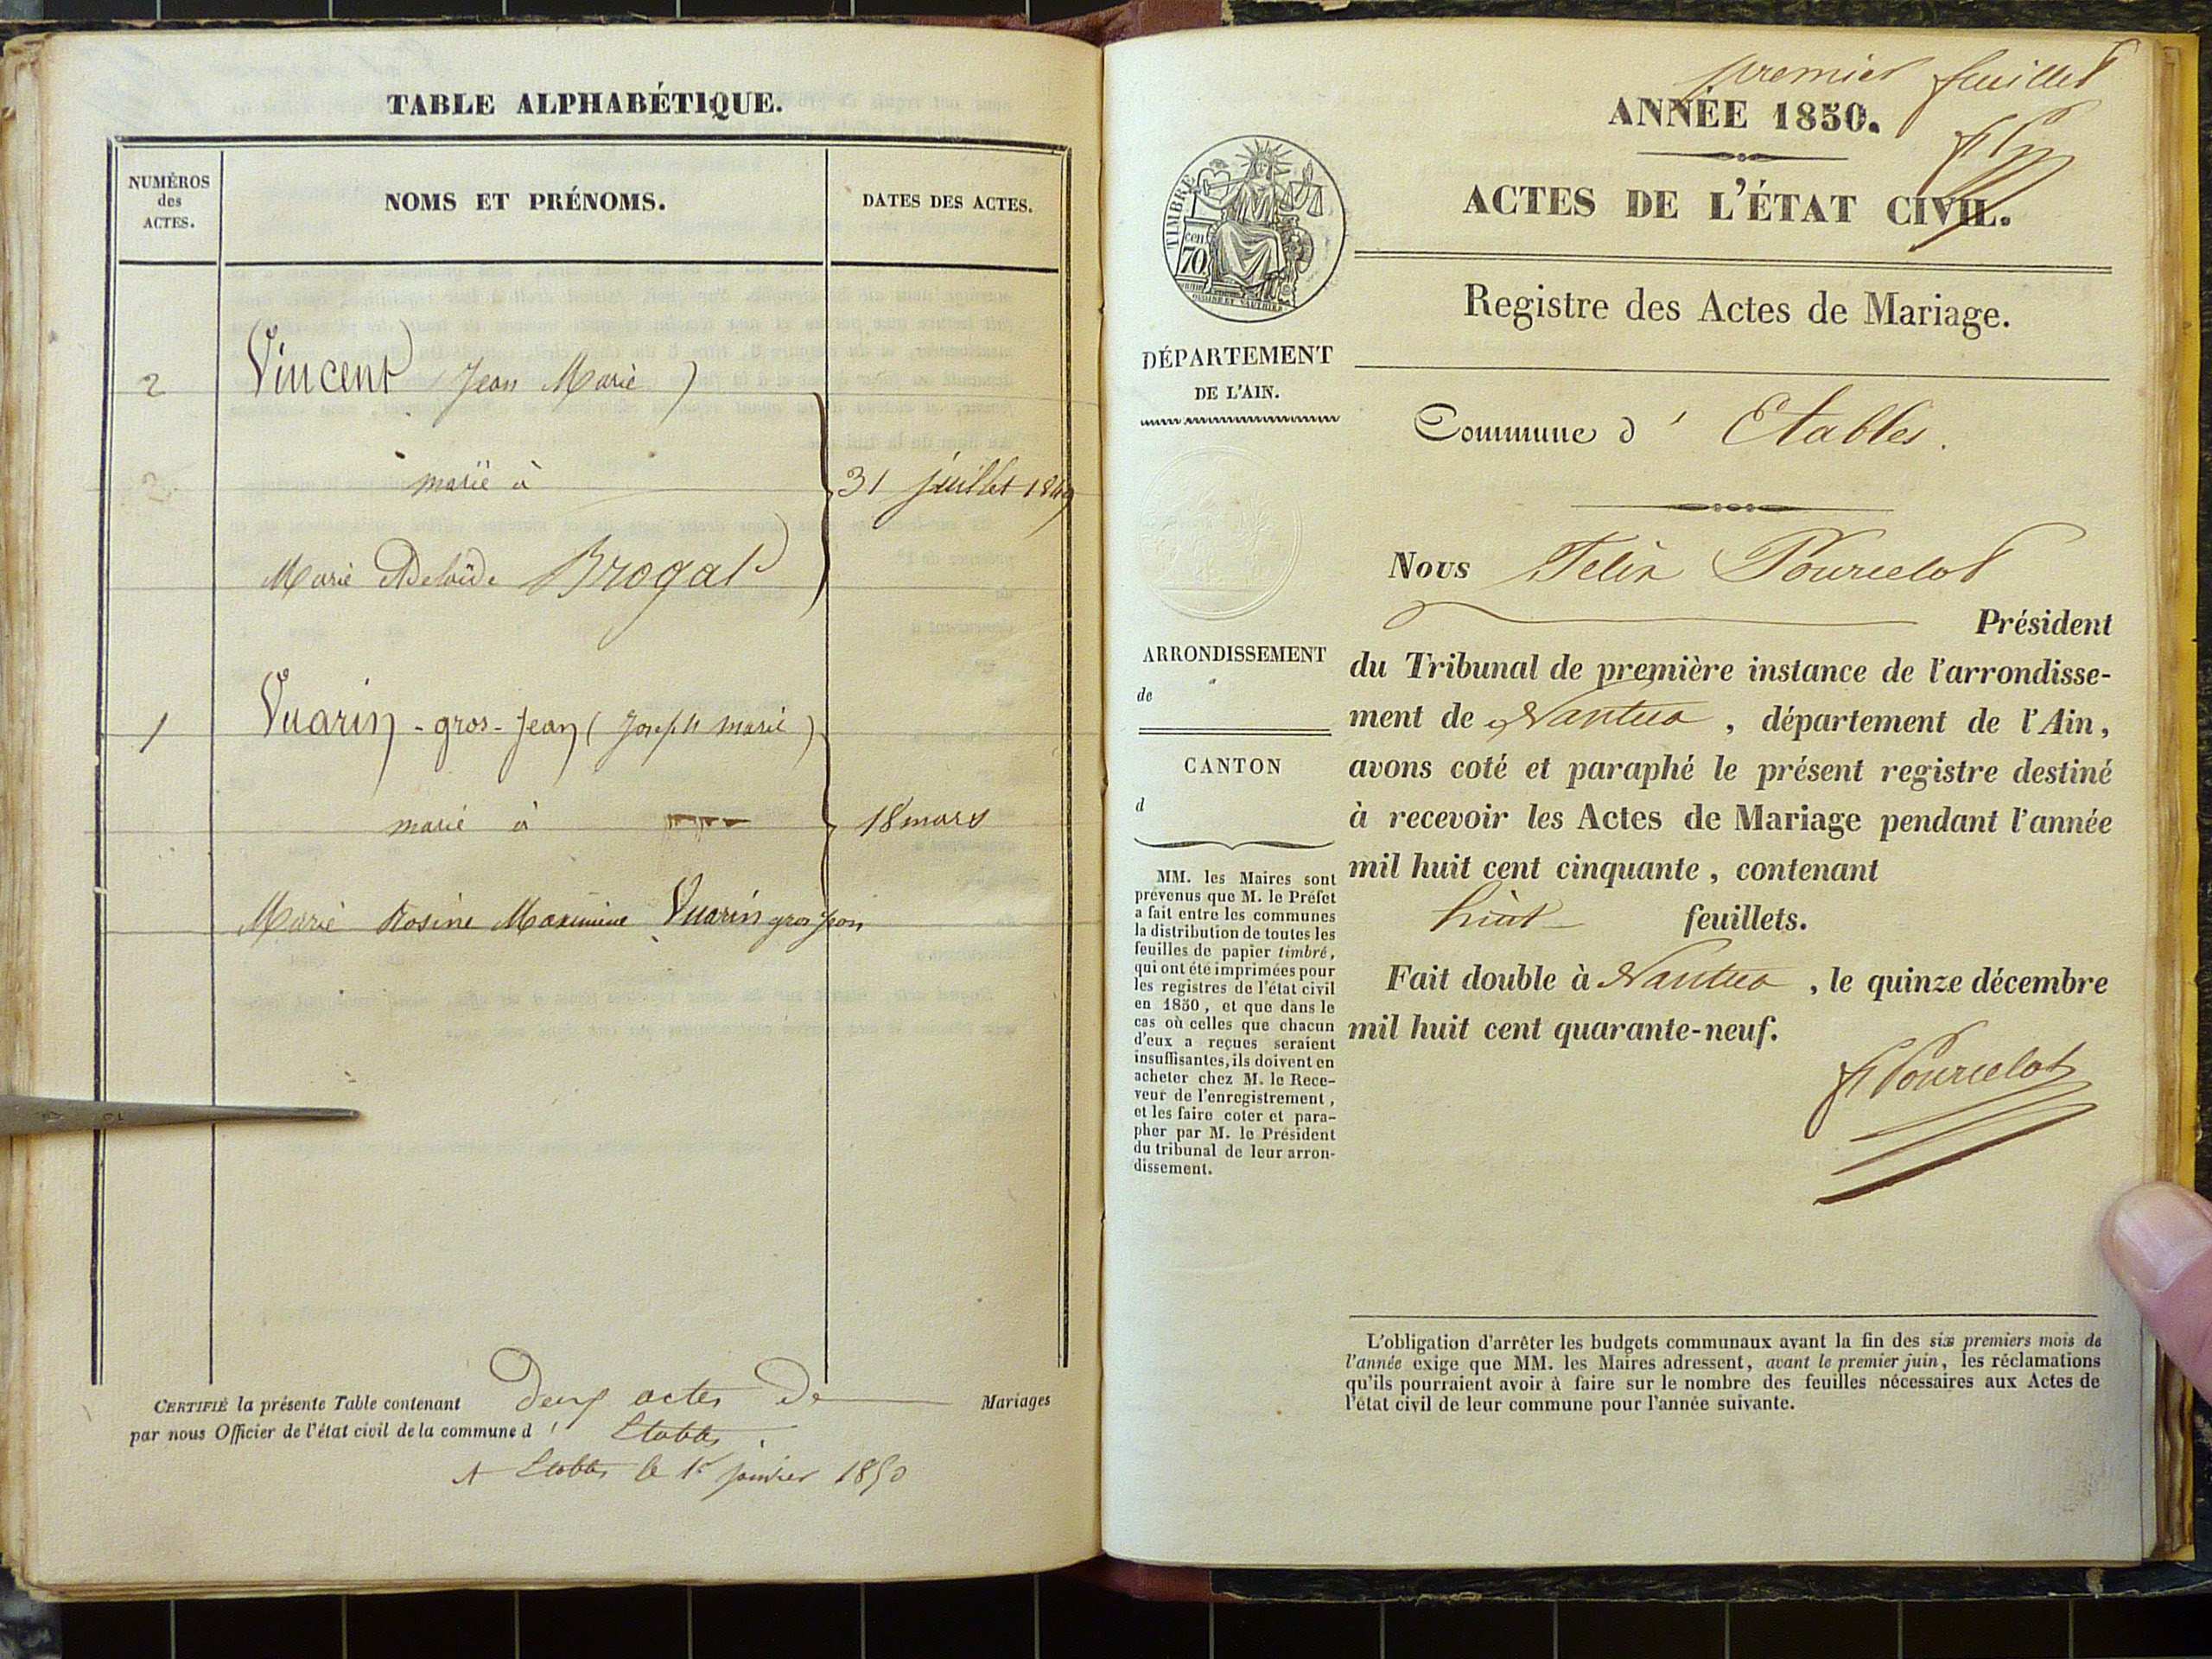 TABLE ALPHABÉTIQUE.
NUMÉROS
des
ACTES.
NOMS ET PRÉNOMS.
DATES DES ACTES.
2
Vincent (Jean Marie)
marié à
31 juillet 1849
Marie Adelaïde Brogat
1
Vuarin-gros-Jean (Joseph marie)
marié à
18 mars
Marie Rosine Maximine Vuarin gros Jean
CERTIFIÉ la présente Table contenant deux actes de Mariages
par nous Officier de l'état civil de la commune d' Etables.
A Etables le 1er janvier 1850
premier feuillet
ANNÉE 1850.
ACTES DE L'ÉTAT CIVIL.
TIMBRE
70 cen
Registre des Actes de Mariage.
DÉPARTEMENT
DE L'AIN.
Commune d' Etables.
Nous Félix Pourcelot
Président
du Tribunal de première instance de l'arrondisse-
ment de Nantua, département de l'Ain,
avons coté et paraphé le présent registre destiné
à recevoir les Actes de Mariage pendant l'année
mil huit cent cinquante, contenant
huit feuillets.
Fait double à Nantua, le quinze décembre
mil huit cent quarante-neuf.
F Pourcelot
ARRONDISSEMENT
de
CANTON
d
MM. les Maires sont
prévenus que M. le Préfet
a fait entre les communes
la distribution de toutes les
feuilles de papier timbré,
qui ont été imprimées pour
les registres de l'état civil
en 1850, et que dans le
cas où celles que chacun
d'eux a reçues seraient
insuffisantes, ils doivent en
acheter chez M. le Rece-
veur de l'enregistrement,
et les faire coter et para-
pher par M. le Président
du tribunal de leur arron-
dissement.
L'obligation d'arrêter les budgets communaux avant la fin des six premiers mois de
l'année exige que MM. les Maires adressent, avant le premier juin, les réclamations
qu'ils pourraient avoir à faire sur le nombre des feuilles nécessaires aux Actes de
l'état civil de leur commune pour l'année suivante.